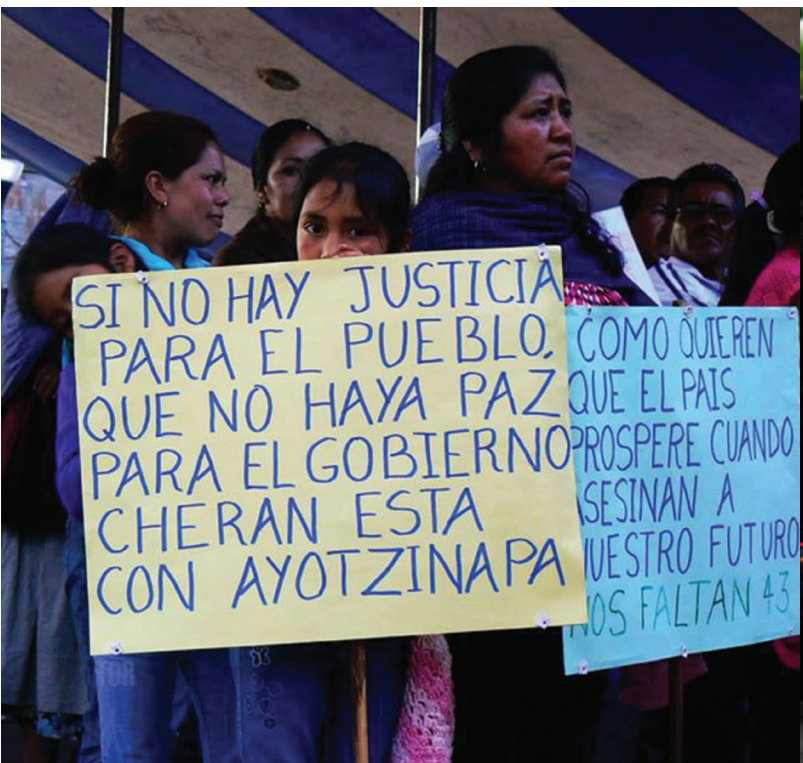 SI NO HAY JUSTICIA
PARA EL PUEBLO,
QUE NO HAYA PAZ
PARA EL GOBIERNO
CHERAN ESTA
CON AYOTZINAPA
COMO QUIEREN
QUE EL PAIS
PROSPERE CUANDO
ASESINAN A
NUESTRO FUTURO
NOS FALTAN 43